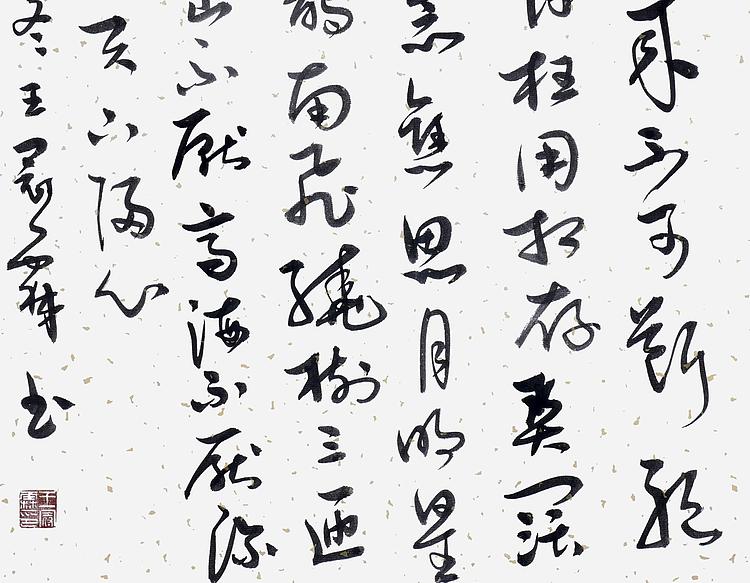 来不可斷绝
枉用相存契阔
念舊恩月明星
南飛繞樹三匝
山不厭高海不厭深
天下歸心
冬王書